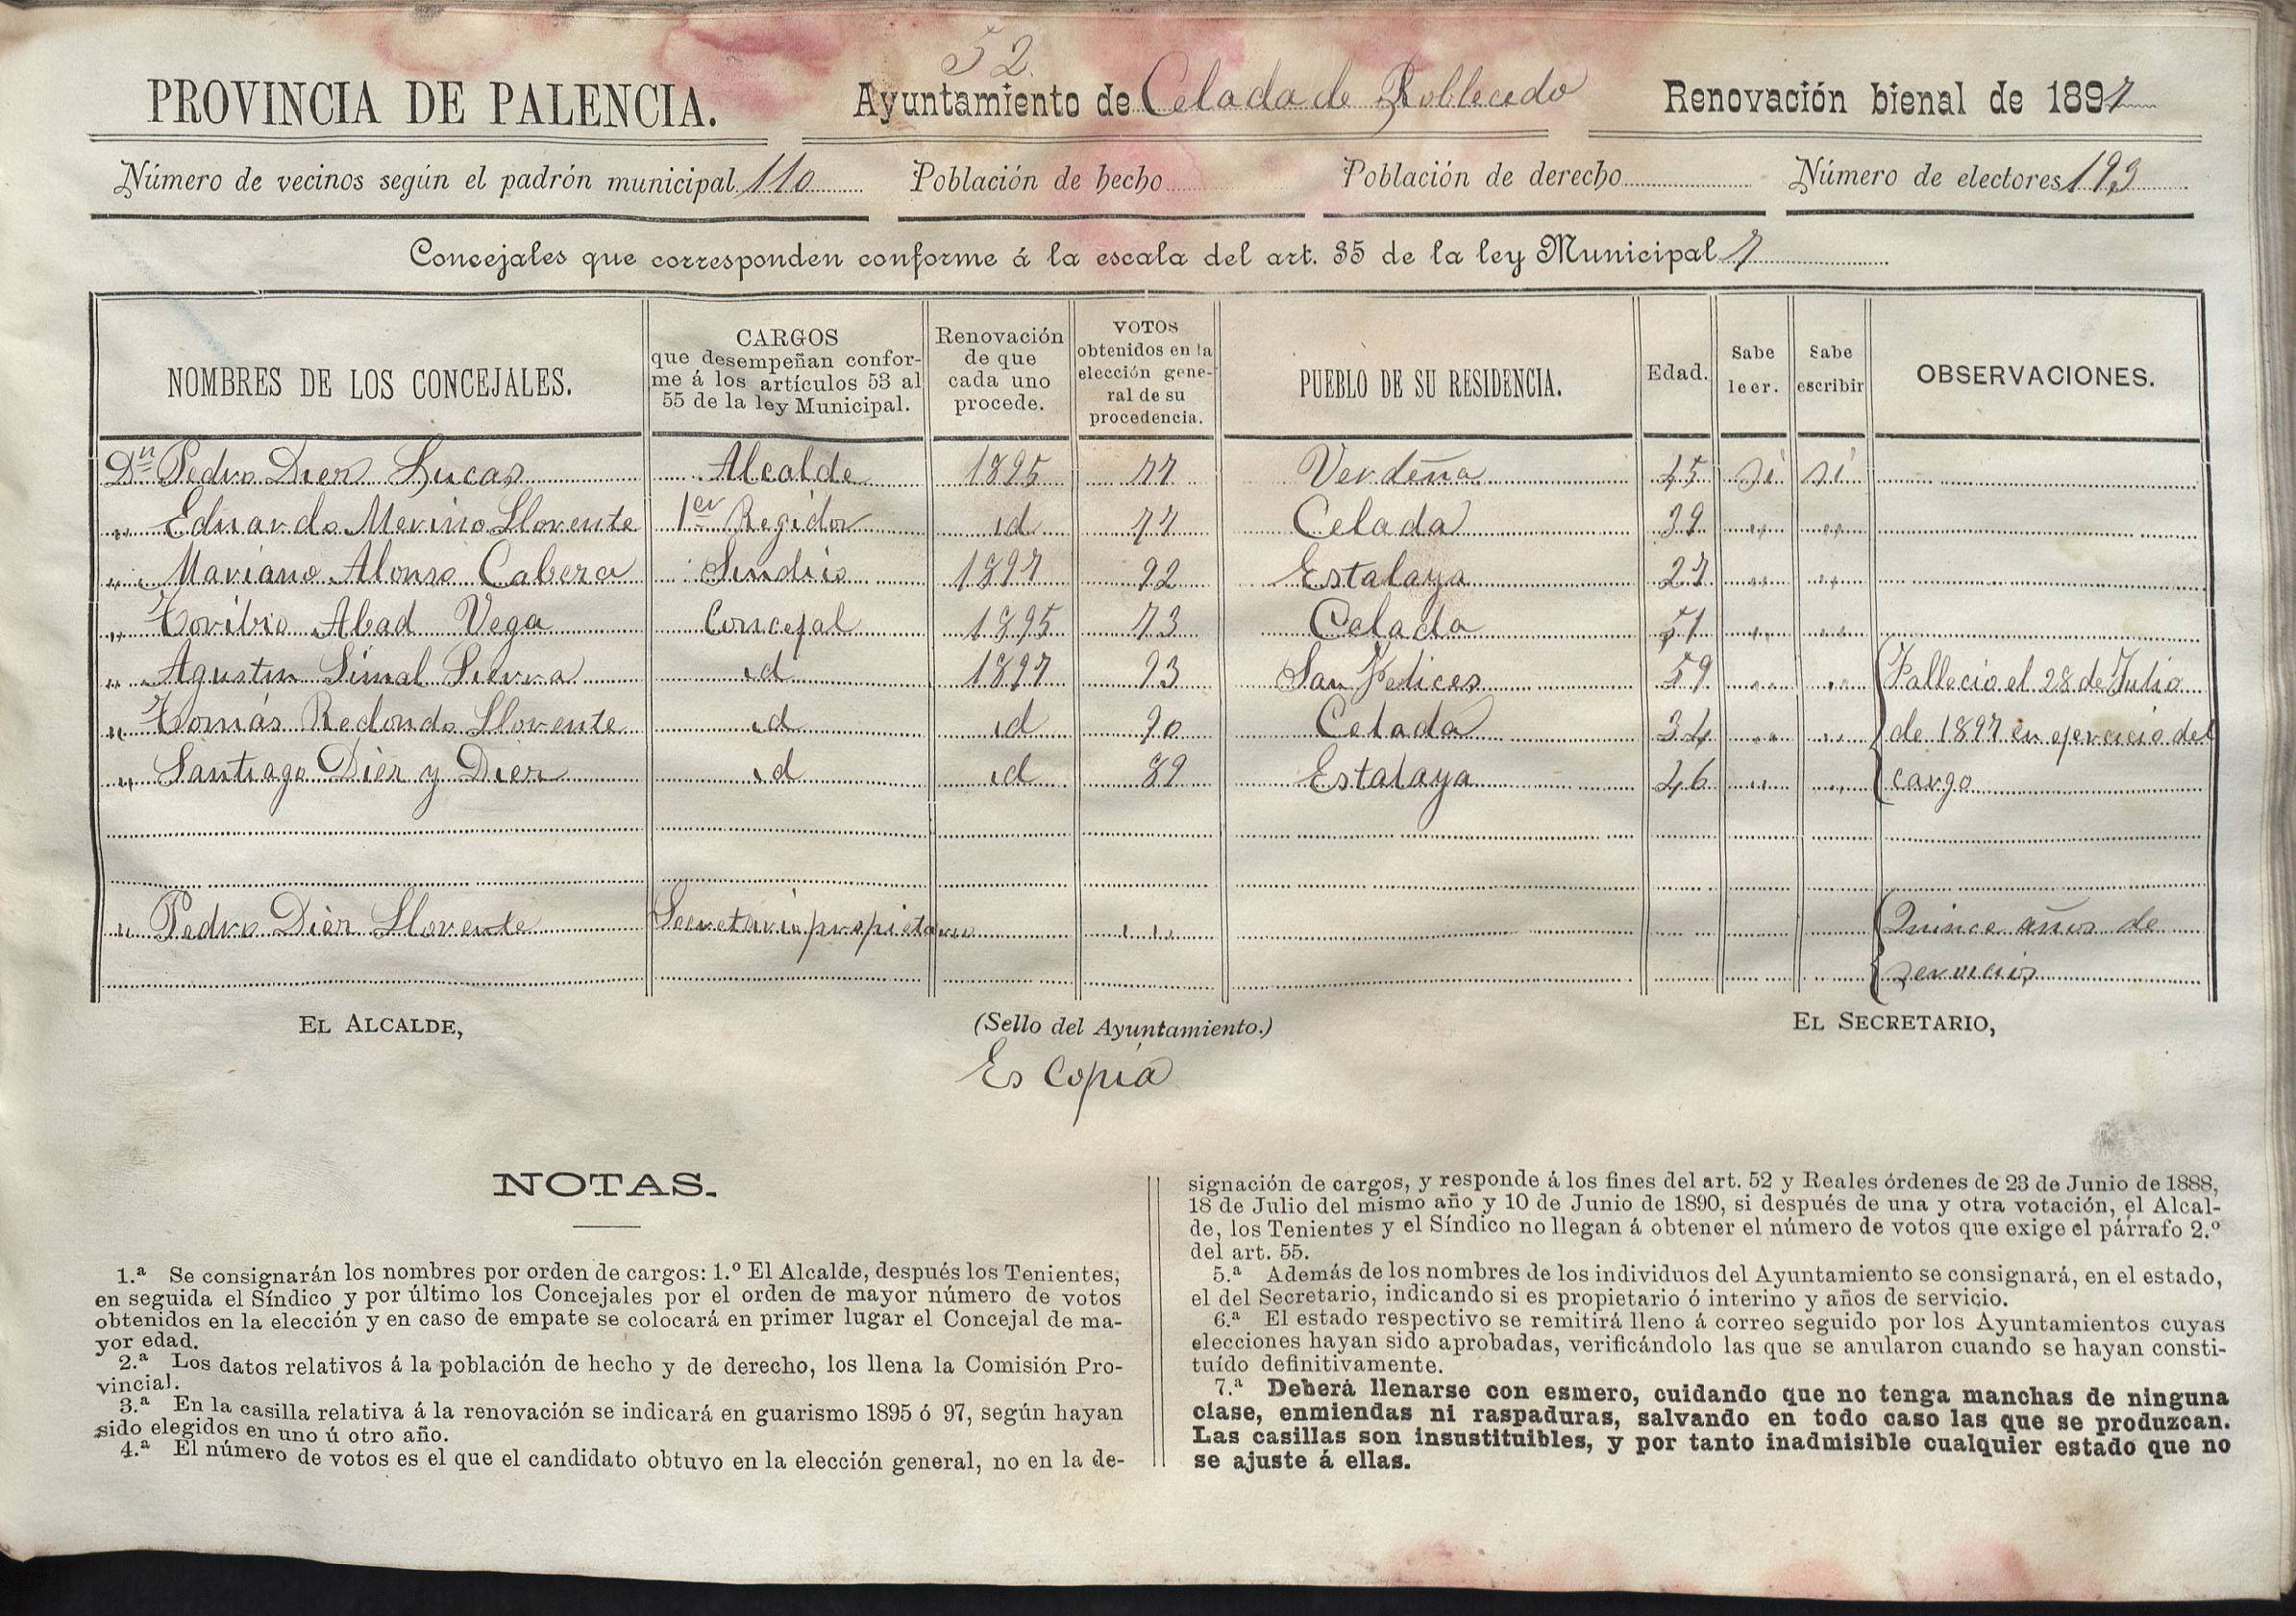 52
PROVINCIA DE PALENCIA. Ayuntamiento de Celada de Roblecedo Renovación bienal de 1897
Número de vecinos según el padrón municipal 110 Población de hecho Población de derecho Número de electores 193
Concejales que corresponden conforme á la escala del art. 35 de la ley Municipal 7
NOMBRES DE LOS CONCEJALES. CARGOS que desempeñan conforme á los artículos 53 al 55 de la ley Municipal. Renovación de que cada uno procede. VOTOS obtenidos en la elección general de su procedencia. PUEBLO DE SU RESIDENCIA. Edad. Sabe leer. Sabe escribir OBSERVACIONES.
Dn Pedro Diez Lucas Alcalde 1895 77 Verdeña 45 si si
" Eduardo Merino Llorente 1er Regidor id 77 Celada 39 " "
" Mariano Alonso Cabeza Sindico 1897 92 Estalaya 27 " "
" Toribio Abad Vega Concejal 1895 73 Celada 51 " "
" Agustin Simal Sierra id 1897 93 San Felices 59 " " Fallecio el 28 de Julio
" Tomás Redondo Llorente id id 90 Celada 34 " " de 1897 en ejercicio del
" Santiago Diez y Diez id id 89 Estalaya 46 " " cargo
" Pedro Diez Llorente Secretario propietario " " Quince años de
servicios
EL ALCALDE, (Sello del Ayuntamiento.) EL SECRETARIO,
Es Copia
NOTAS.
1.ª Se consignarán los nombres por orden de cargos: 1.º El Alcalde, después los Tenientes,
en seguida el Síndico y por último los Concejales por el orden de mayor número de votos
obtenidos en la elección y en caso de empate se colocará en primer lugar el Concejal de ma-
yor edad.
2.ª Los datos relativos á la población de hecho y de derecho, los llena la Comisión Pro-
vincial.
3.ª En la casilla relativa á la renovación se indicará en guarismo 1895 ó 97, según hayan
sido elegidos en uno ú otro año.
4.ª El número de votos es el que el candidato obtuvo en la elección general, no en la de-
signación de cargos, y responde á los fines del art. 52 y Reales órdenes de 23 de Junio de 1888,
18 de Julio del mismo año y 10 de Junio de 1890, si después de una y otra votación, el Alcal-
de, los Tenientes y el Síndico no llegan á obtener el número de votos que exige el párrafo 2.º
del art. 55.
5.ª Además de los nombres de los individuos del Ayuntamiento se consignará, en el estado,
el del Secretario, indicando si es propietario ó interino y años de servicio.
6.ª El estado respectivo se remitirá lleno á correo seguido por los Ayuntamientos cuyas
elecciones hayan sido aprobadas, verificándolo las que se anularon cuando se hayan consti-
tuído definitivamente.
7.ª Deberá llenarse con esmero, cuidando que no tenga manchas de ninguna
clase, enmiendas ni raspaduras, salvando en todo caso las que se produzcan.
Las casillas son insustituibles, y por tanto inadmisible cualquier estado que no
se ajuste á ellas.